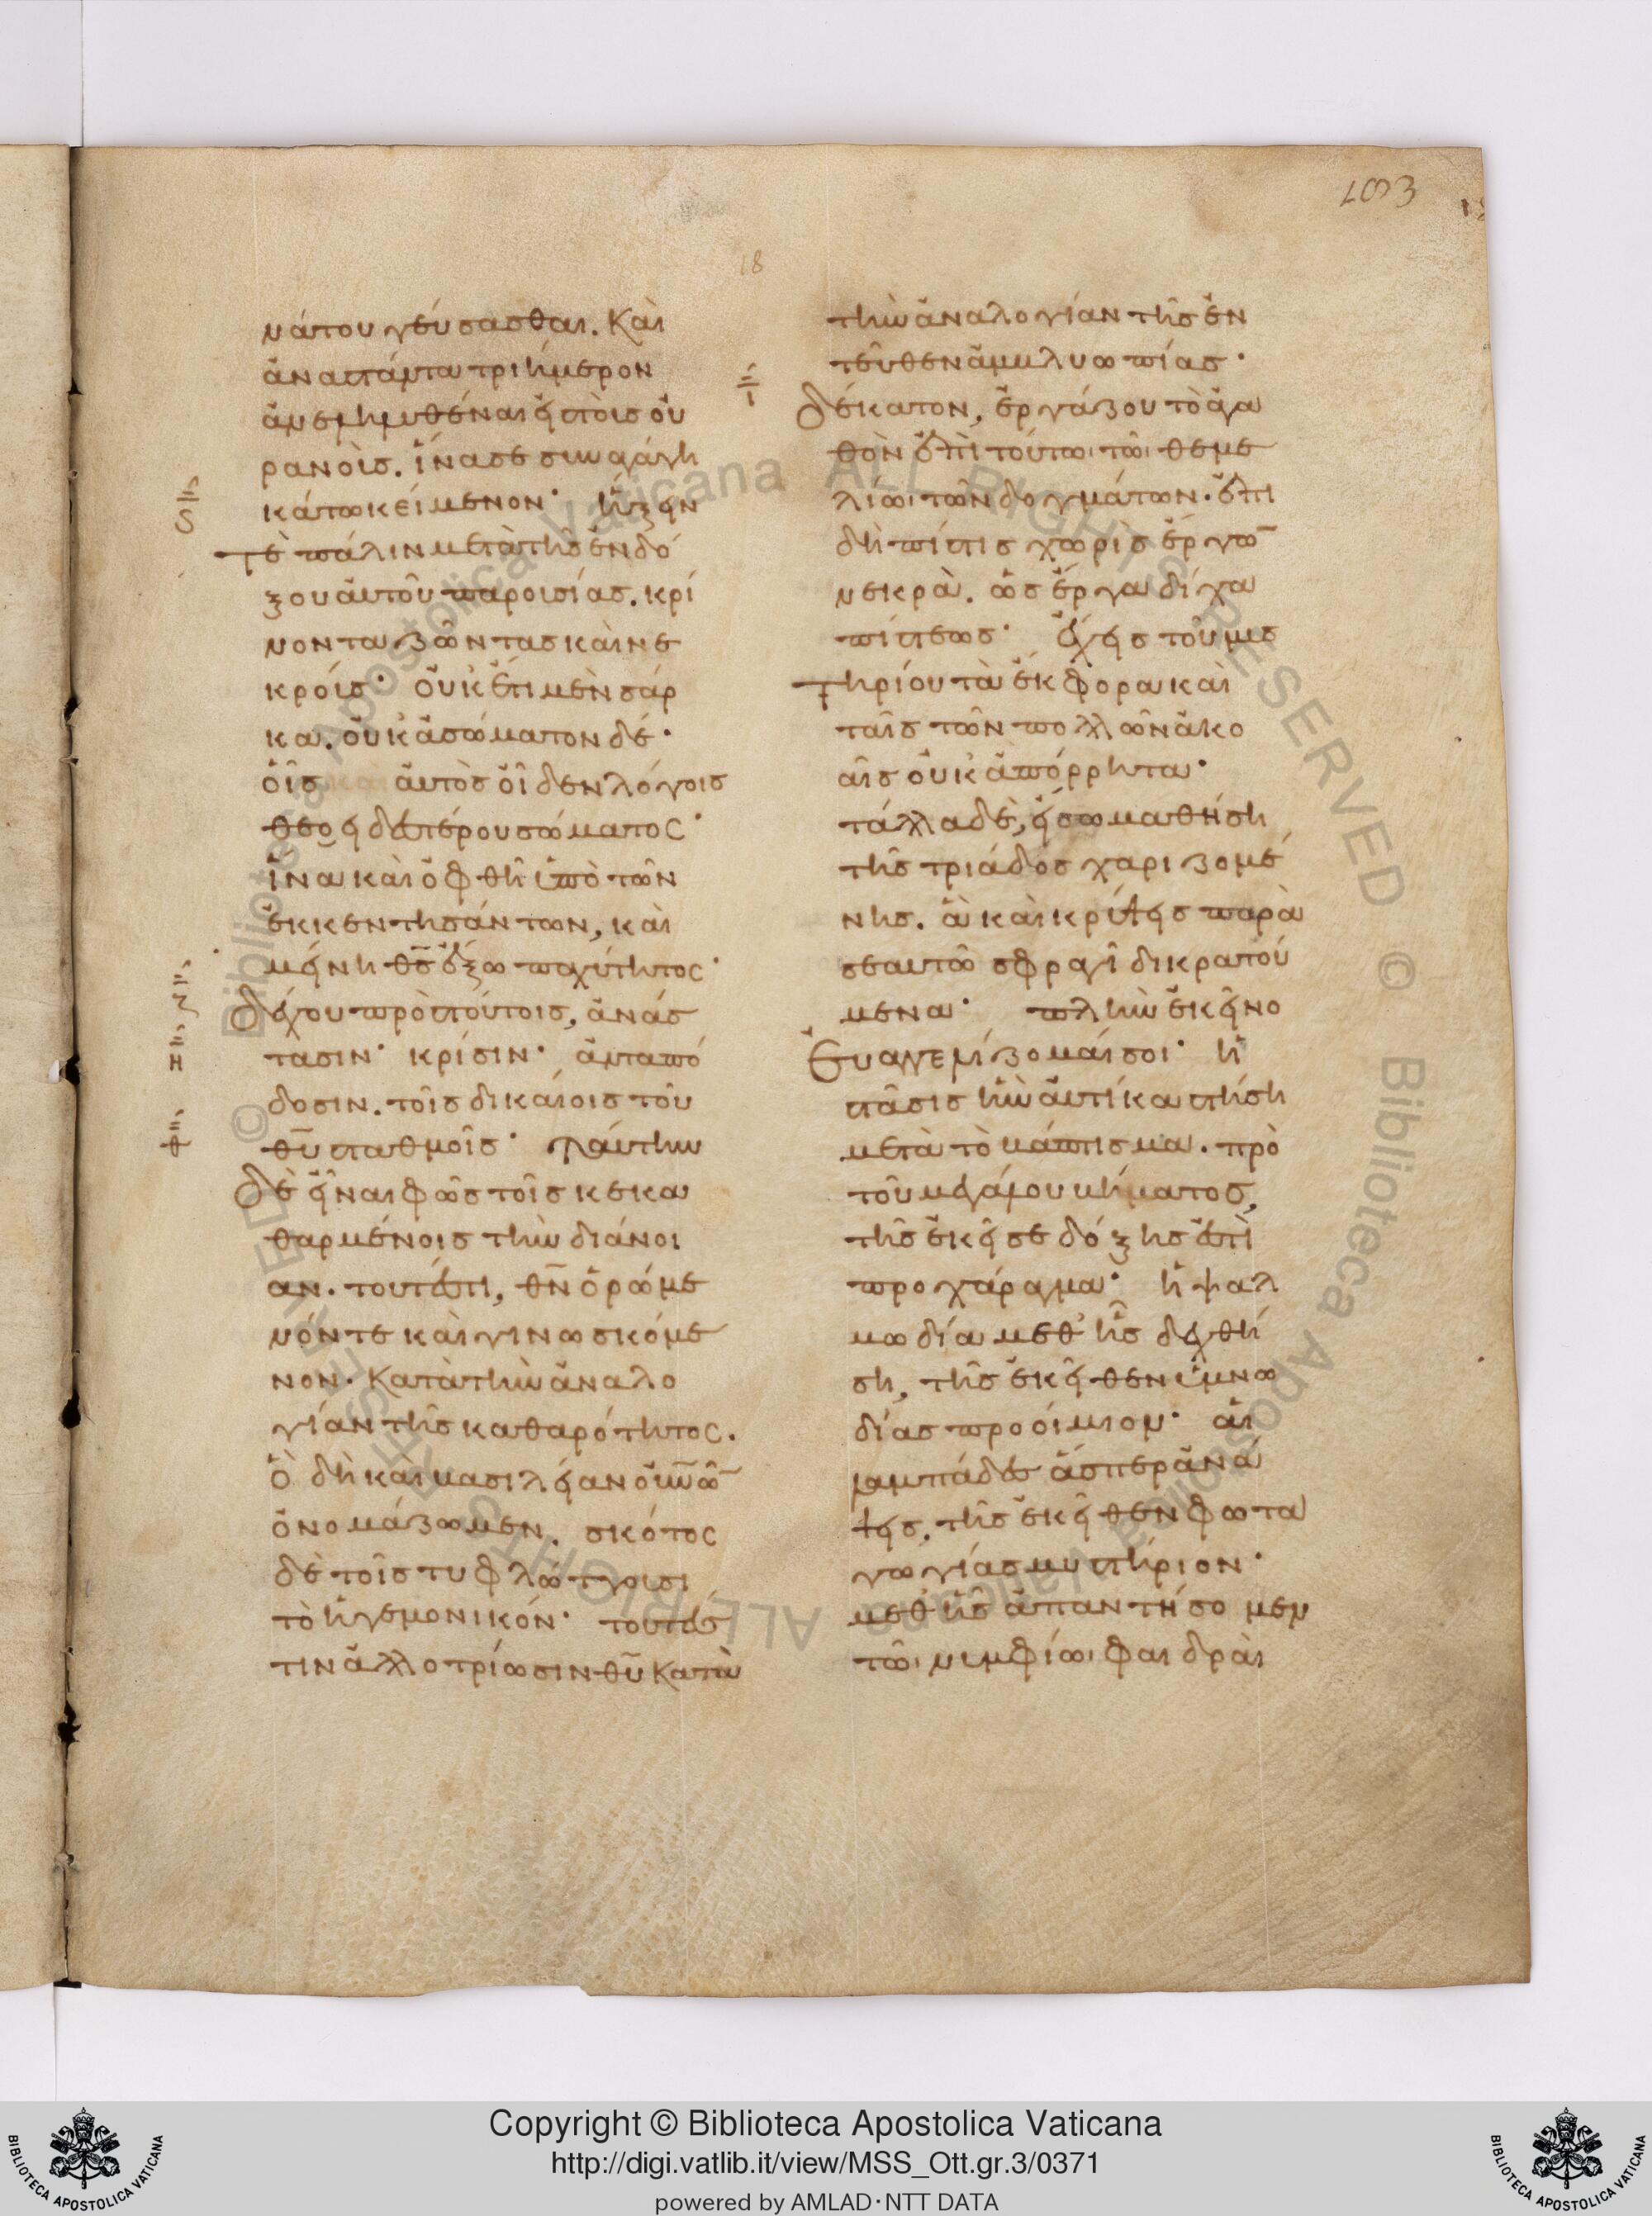 1083
18
νάτου γεύσασθαι. Καὶ
ἀναστάντα τριήμερον
ἀνεληλυθέναι εἰς τοὺς οὐ
ρανοὺς. ἵνα σε συναγάγη
κάτω κείμενον· ἥξειν
ϛ
τὲ πάλιν μετὰ τῆς ἐνδό
ξου αὐτοῦ παρουσίας. κρί
νοντα ζῶντας καὶ νε
κρούς· οὐκέτι μὲν σάρ
κα. οὐκ ἀσώματον δέ·
οἷς αὐτὸς οἶδεν λόγοις
θεοειδεστέρου σώματος·
ἵνα καὶ ὀφθῆ ὑπὸ τῶν
ἐκκεντησάντων, καὶ
μείνη θ̅ς̅ ἔξω παχύτητος·
ζ
δέχου πρὸς τούτοις, ἀνάσ
η
τασιν· κρίσιν· ἀνταπό
δοσιν. τοῖς δικαίοις τοῦ
θ
θ̅υ̅ σταθμοῖς· ταύτην
δὲ εἶναι φῶς τοῖς κεκα
θαρμένοις τὴν διάνοι
αν. τουτέστι, θ̅ν̅ ὁρώμε
νόν τε καὶ γινωσκόμε
νον. Κατὰ τὴν ἀναλο
γίαν τῆς καθαρότητος.
ὃ δὴ καὶ βασιλείαν οὐ̅ν̅ω̅
ὀνομάζωμεν. σκότος
δὲ τοῖς τυφλώττουσι
τὸ ἡγεμονικόν· τουτέσ
τιν ἀλλοτρίωσιν θ̅υ̅ Κατὰ
τὴν ἀναλογίαν τῆς ἐν
τεῦθεν ἀμβλυωπίας·
ι
δέκατον, ἐργάζου τὸ ἀγα
θὸν ἐπὶ τούτω τῶ θεμε
λίω τῶν δογμάτων. ἐπι
δὴ πίστις χωρὶς ἔργω̅
νεκρὰ. ὡς ἔργα δίχα
πίστεως· ἔχεις τοῦ μυσ
τηρίου τὰ ἔκφορα καὶ
ταῖς τῶν πολλῶν ἀκο
αῖς οὐκ ἀπόρρητα·
τάλλα δὲ, εἴσω μαθήση
τῆς τριάδος χαριζομέ
νης. ἃ καὶ κρύψεις παρὰ
σεαυτῶ σφραγίδι κρατού
μενα· πλὴν ἐκεῖνο
εὐαγγελίζομαί σοι· ἡ
στᾶσις ἣν αὐτίκα στήση
μετὰ τὸ βάπτισμα. πρὸ
τοῦ μεγάλου βήματος,
τῆς ἐκεῖσε δόξης ἐστὶ
προχάραγμα· ἡ ψαλ
μωδία μεθ’ ἧς δεχθή
ση, τῆς ἐκεῖθεν ὑμνω
δίας προοίμιον· αἱ
λαμπάδες ἅσπερ ἀνά
ψεις, τῆς ἐκεῖθεν φωτα
γωγίας μυστήριον·
μεθ’ ἧς ἀπαντήσομεν
τῶ νυμφίω φαιδραὶ
Copyright © Biblioteca Apostolica Vaticana
http://digi.vatlib.it/view/MSS_Ott.gr.3/0371
powered by AMLAD·NTT DATA